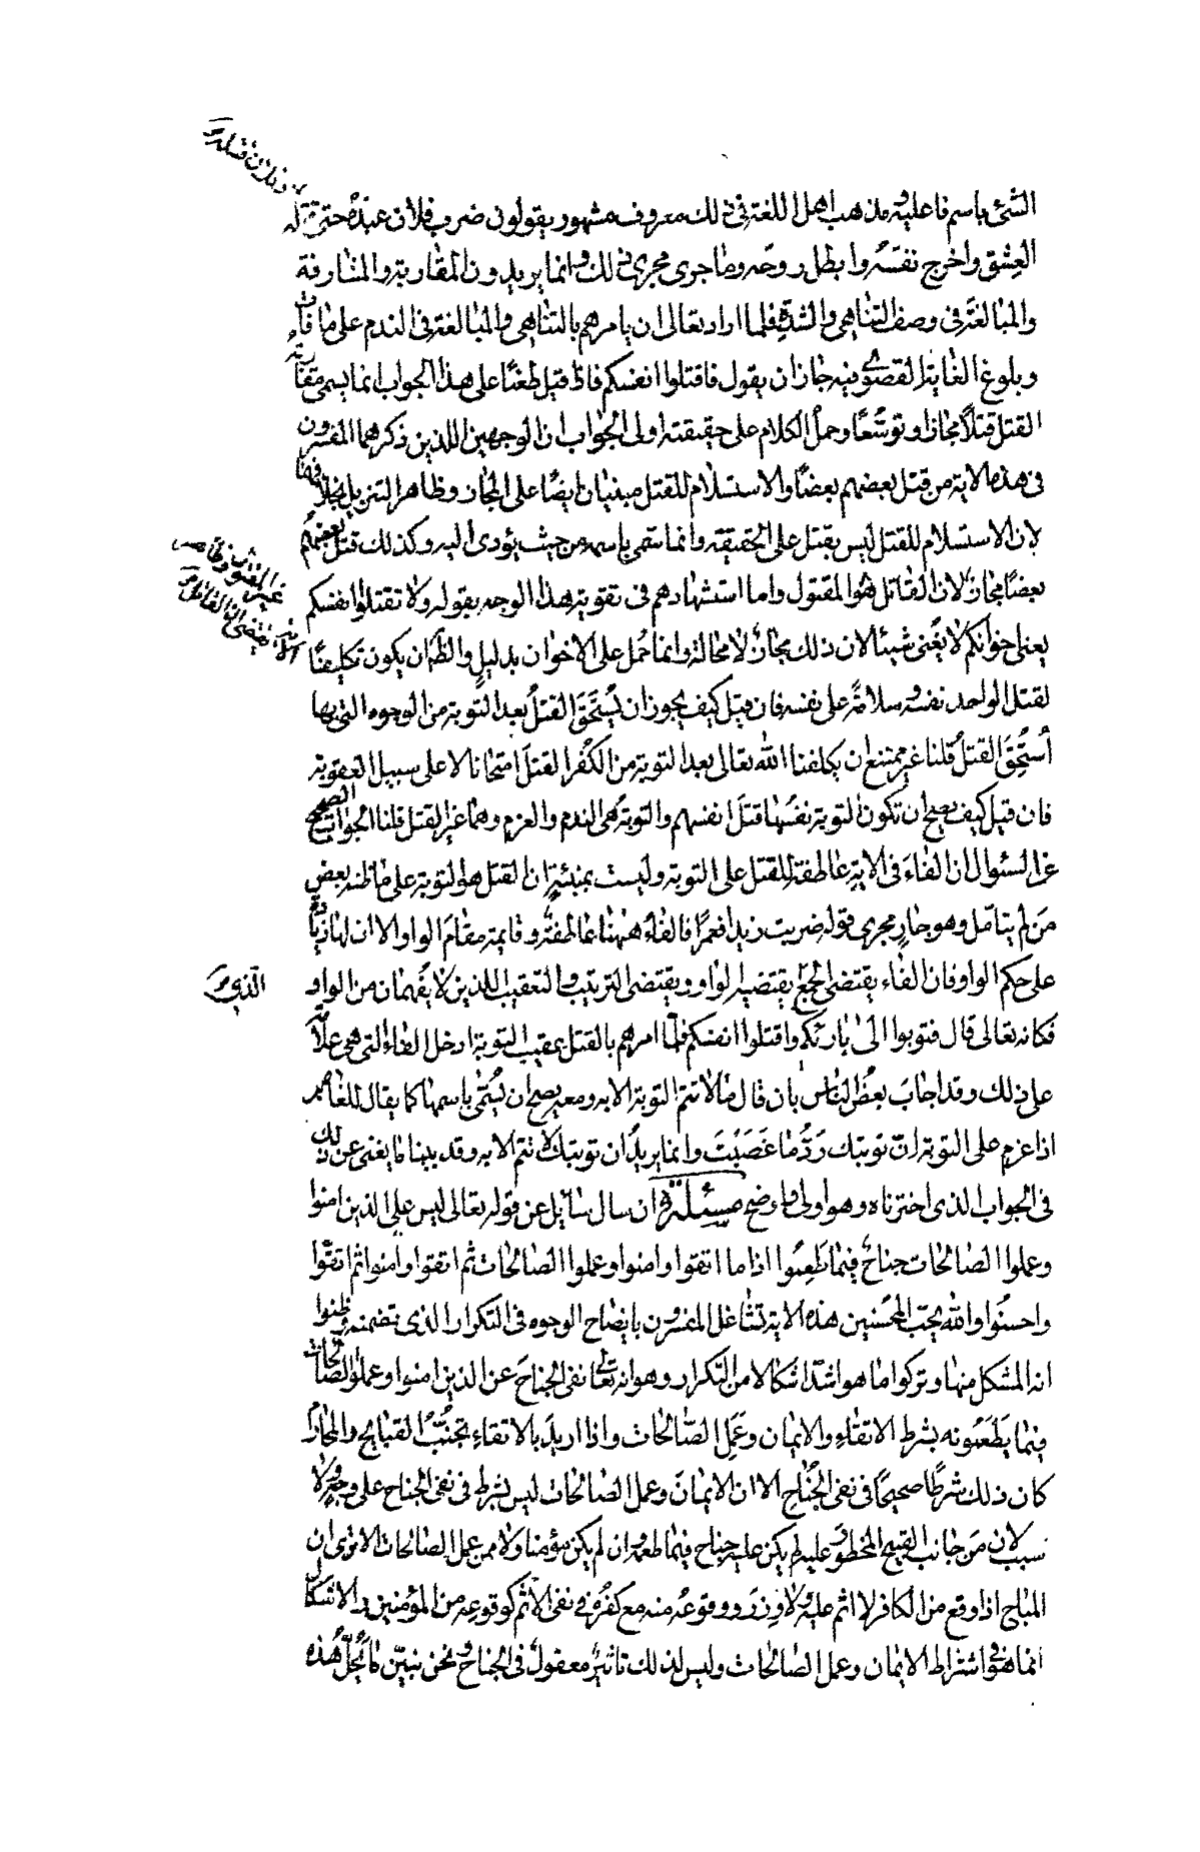 وفلان قتله
الشئ باسم فاعليه ومذهب اهل اللغة فى ذلك معروف مشهور يقولون ضرب فلان عبده حتى قتله
العِشق واخرج نفسَهُ وابطل روحَه وما جرى مجرى ذلك وانما يريدون المقاربة والمشارفة
والمبالغة فى وصف التناهى والشدة فلما اراد تعالى ان يامرهم بالتناهى والمبالغة فى الندم على ما فات
وبلوغ الغاية القصوى فيه جاز ان يقول فاقتلوا انفسكم فاذا قيل طعنًا على هذا الجواب انما يسمى مقاربة
القتل قتلاً مجازا وتوسّعًا وحمل الكلام على حقيقته اولى الجواب ان الوجهين اللذين ذكرهما المفسرون
فى هذه الاية من قتل بعضهم بعضًا والاستسلام للقتل مبنيان ايضًا على المجاز وظاهر التنزيل بخلافهما
لان الاستسلام للقتل ليس بقتل على الحقيقة وانما سمّى باسمه من حيث يؤدى اليه وكذلك قتل بعضهم
غير المقتول وظاهر
الاية يقتضى ان القاتل
بعضًا مجازٌ لان القاتل هو المقتول واما استشهادهم فى تقوية هذا الوجه بقوله ولا تقتلوا انفسكم
يعنى اخوانكم لا يُغنى شيئا لان ذلك مجازٌ لا محالة وانما حُمل على الاخوان بدليلٍ والظاهر ان يكون تكليفًا
لقتل الواحد نفسه وسلامةً على نفسه فان قيل كيف يجوز ان يُستحَقَ القتلُ بعد التوبة من الوجوه التى بها
اُستُحِقَ القتلُ قلنا غير ممتنع ان يكلفنا الله تعالى بعد التوبة من الكُفر القتلَ امتحانا لا على سبيل العقوبة
فان قيل كيف يصح ان تكون التوبة نفسُها قتلَ انفسهم والتوبة هى الندم والعزم وهما غير القتل قلنا الجواب الصحيح
عن السئوال ان الفاءَ فى الاية عاطفة للقتل على التوبة وليست بمنبئةٍ ان القتل هو التوبة على ما ظنه بعض
مَن لم يتامّل وهو جارٍ مجرى قوله ضربت زيدا فعمرًا فالفاءُ ههنا عاطفة وقايمة مقامَ الواو الا ان لها زيادة
على حكم الواو فان الفاء يقتضى الجمعَ يقتضيه الواو ويقتضى الترتيب والتعقيب اللذين لا يُفهمان من الواو
الّذى
فكانه تعالى قال فتوبوا الى بارئكم واقتلوا انفسكم فلمّا امرهم بالقتل عقيب التوبة ادخل الفاء التى هى علامَةٌ
على ذلك وقد اجابَ بعضُ الناس بان قال ما لا تتم التوبة الا به ومعه يصح ان يُسمّى باسمها كما يقال للغاصب
اذا عزم على التوبة انّ توبتك رَدُّ ما غَصَبتَ وانما يريدُ ان توبتك لا تتم الا به وقد بينا ما يغنى عن ذلك
فى الجواب الذى اخترناه وهو اولى واوضح مسئلة ان سال سائل عن قوله تعالى ليس على الذين امنوا
وعملوا الصالحات جناحٌ فيما طَعِمُوا اذا ما اتقوا وامنوا وعملوا الصالحات ثم اتقوا وامنوا ثم اتقَوا
واحسنُوا والله يحبّ المحسنين هذه الاية تشاغل المفسرون بايضاح الوجوه فى التكرار الذى تضمنته وظنوا
انه المشكل منها وتركوا ما هو اشدّ اشكالا من التكرار وهو انه تعالى نفى الجناحَ عن الذين امنوا وعملوا الصالحات
فيما يَطعَمُونه بشرط الاتقاءِ والايمان وعَمَل الصّالحات واذا اريدَ بالاتقاءِ تجنُّبُ القبايح والمحارم
كان ذلك شرطًا صحيحًا فى نفى الجُناحِ الا ان الايمانَ وعمل الصالحات ليس بشرط فى نفى الجناح على وجهٍ ولا
سببٍ لان مَن جانب القبيح المحظور عليه لم يكن عليه جناح فيما طعمه وان لم يكن مؤمنا ولا ممن عمل الصالحات الا ترى ان
المباح اذا وقع من الكافر لا اثم عليه ولا وِزرَ ووقوعُه منه مع كفرُه فى نفى الاثم كوقوعه من المؤمنين والاشكال
انما هو فى اشتراط الايمان وعمل الصالحات وليس لذلك تاثيرٌ معقولٌ فى الجناح ونحن نبيّن ما يحلّ هذه